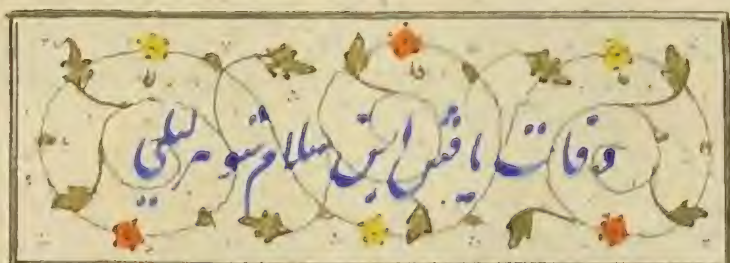 وفات یافتن ابن سلام شوهر لیلی